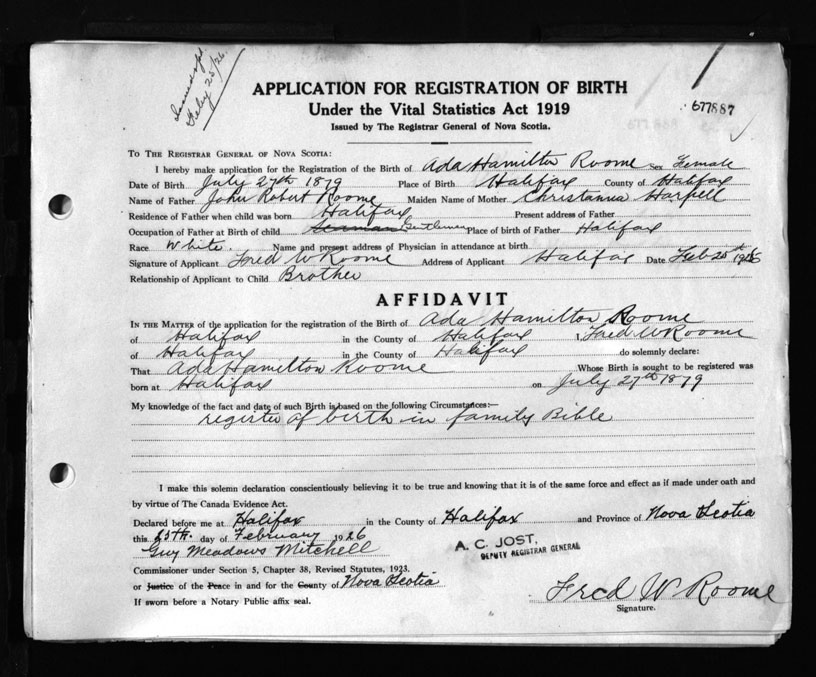 Feby 25/26.
APPLICATION FOR REGISTRATION OF BIRTH
677887
Under the Vital Statistics Act 1919
Issued by The Registrar General of Nova Scotia.
TO THE REGISTRAR GENERAL OF NOVA SCOTIA:
I hereby make application for the Registration of the Birth of Ada Hamilton Roome Sex Female
Date of Birth July 27th 1879 Place of Birth Halifax County of Halifax
Name of Father John Robert Roome Maiden Name of Mother Christanna Harpell
Residence of Father when child was born Halifax Present address of Father
Occupation of Father at Birth of child Seaman Gentlemen Place of birth of Father Halifax
Race White. Name and present address of Physician in attendance at birth
Signature of Applicant Fred W Roome Address of Applicant Halifax Date Feb 25th 1926
Relationship of Applicant to Child Brother
AFFIDAVIT
IN THE MATTER of the application for the registration of the Birth of Ada Hamilton Roome
of Halifax in the County of Halifax I, Fred W Roome
of Halifax in the County of Halifax do solemnly declare:
That Ada Hamilton Roome Whose Birth is sought to be registered was
born at Halifax on July 27th 1879
My knowledge of the fact and date of such Birth is based on the following Circumstances:—
register of birth in family Bible
I make this solemn declaration conscientiously believing it to be true and knowing that it is of the same force and effect as if made under oath and
by virtue of The Canada Evidence Act.
Declared before me at Halifax in the County of Halifax and Province of Nova Scotia
this 25th. day of February 1926
Guy Meadows Mitchell
A. C. JOST,
DEPUTY REGISTRAR GENERAL
Commissioner under Section 5, Chapter 38, Revised Statutes, 1923.
or Justice of the Peace in and for the County of Nova Scotia
If sworn before a Notary Public affix seal.
Fred W Roome
Signature.